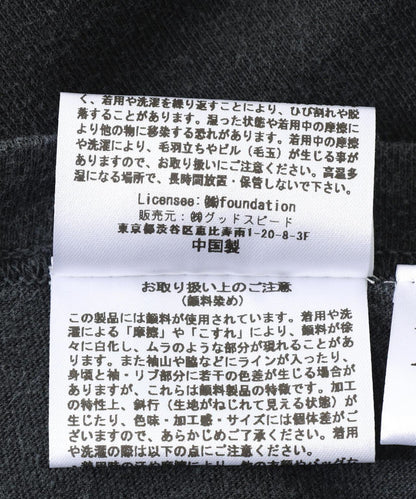 く、着用や洗濯を繰り返すことにより、ひび割れや脱
落することがあります。湿った状態や着用中の摩擦に
より他の物に移染する恐れがあります。着用中の摩擦
や洗濯により、毛羽立ちやピル（毛玉）が生じる事が
ありますので、お取り扱いにご注意ください。高温多
湿になる場所で、長時間放置・保管しないで下さい。
Licensee: ㈱foundation
販売元：㈱グッドスピード
東京都渋谷区恵比寿南1-20-8-3F
中国製
お取り扱い上のご注意
（顔料染め）
この製品には顔料が使用されています。着用や洗
濯による「摩擦」や「こすれ」により、顔料が徐
々に白化し、ムラのような部分が現れることがあ
ります。また袖山や脇などにラインが入ったり、
身頃と袖・リブ部分に若干の色差が生じる場合が
ありますが、これらは顔料製品の特徴です。加工
の特性上、斜行（生地がねじれて見える状態）が
生じたり、色味・加工感・サイズには個体差がご
ざいますので、あらかじめご了承ください。着用
や洗濯の際は以下の点にご注意ください。